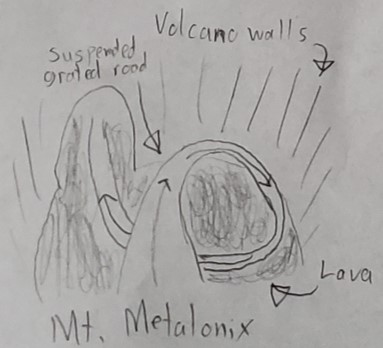 Volcano walls
Suspended
grated road
Lava
Mt. Metalonix